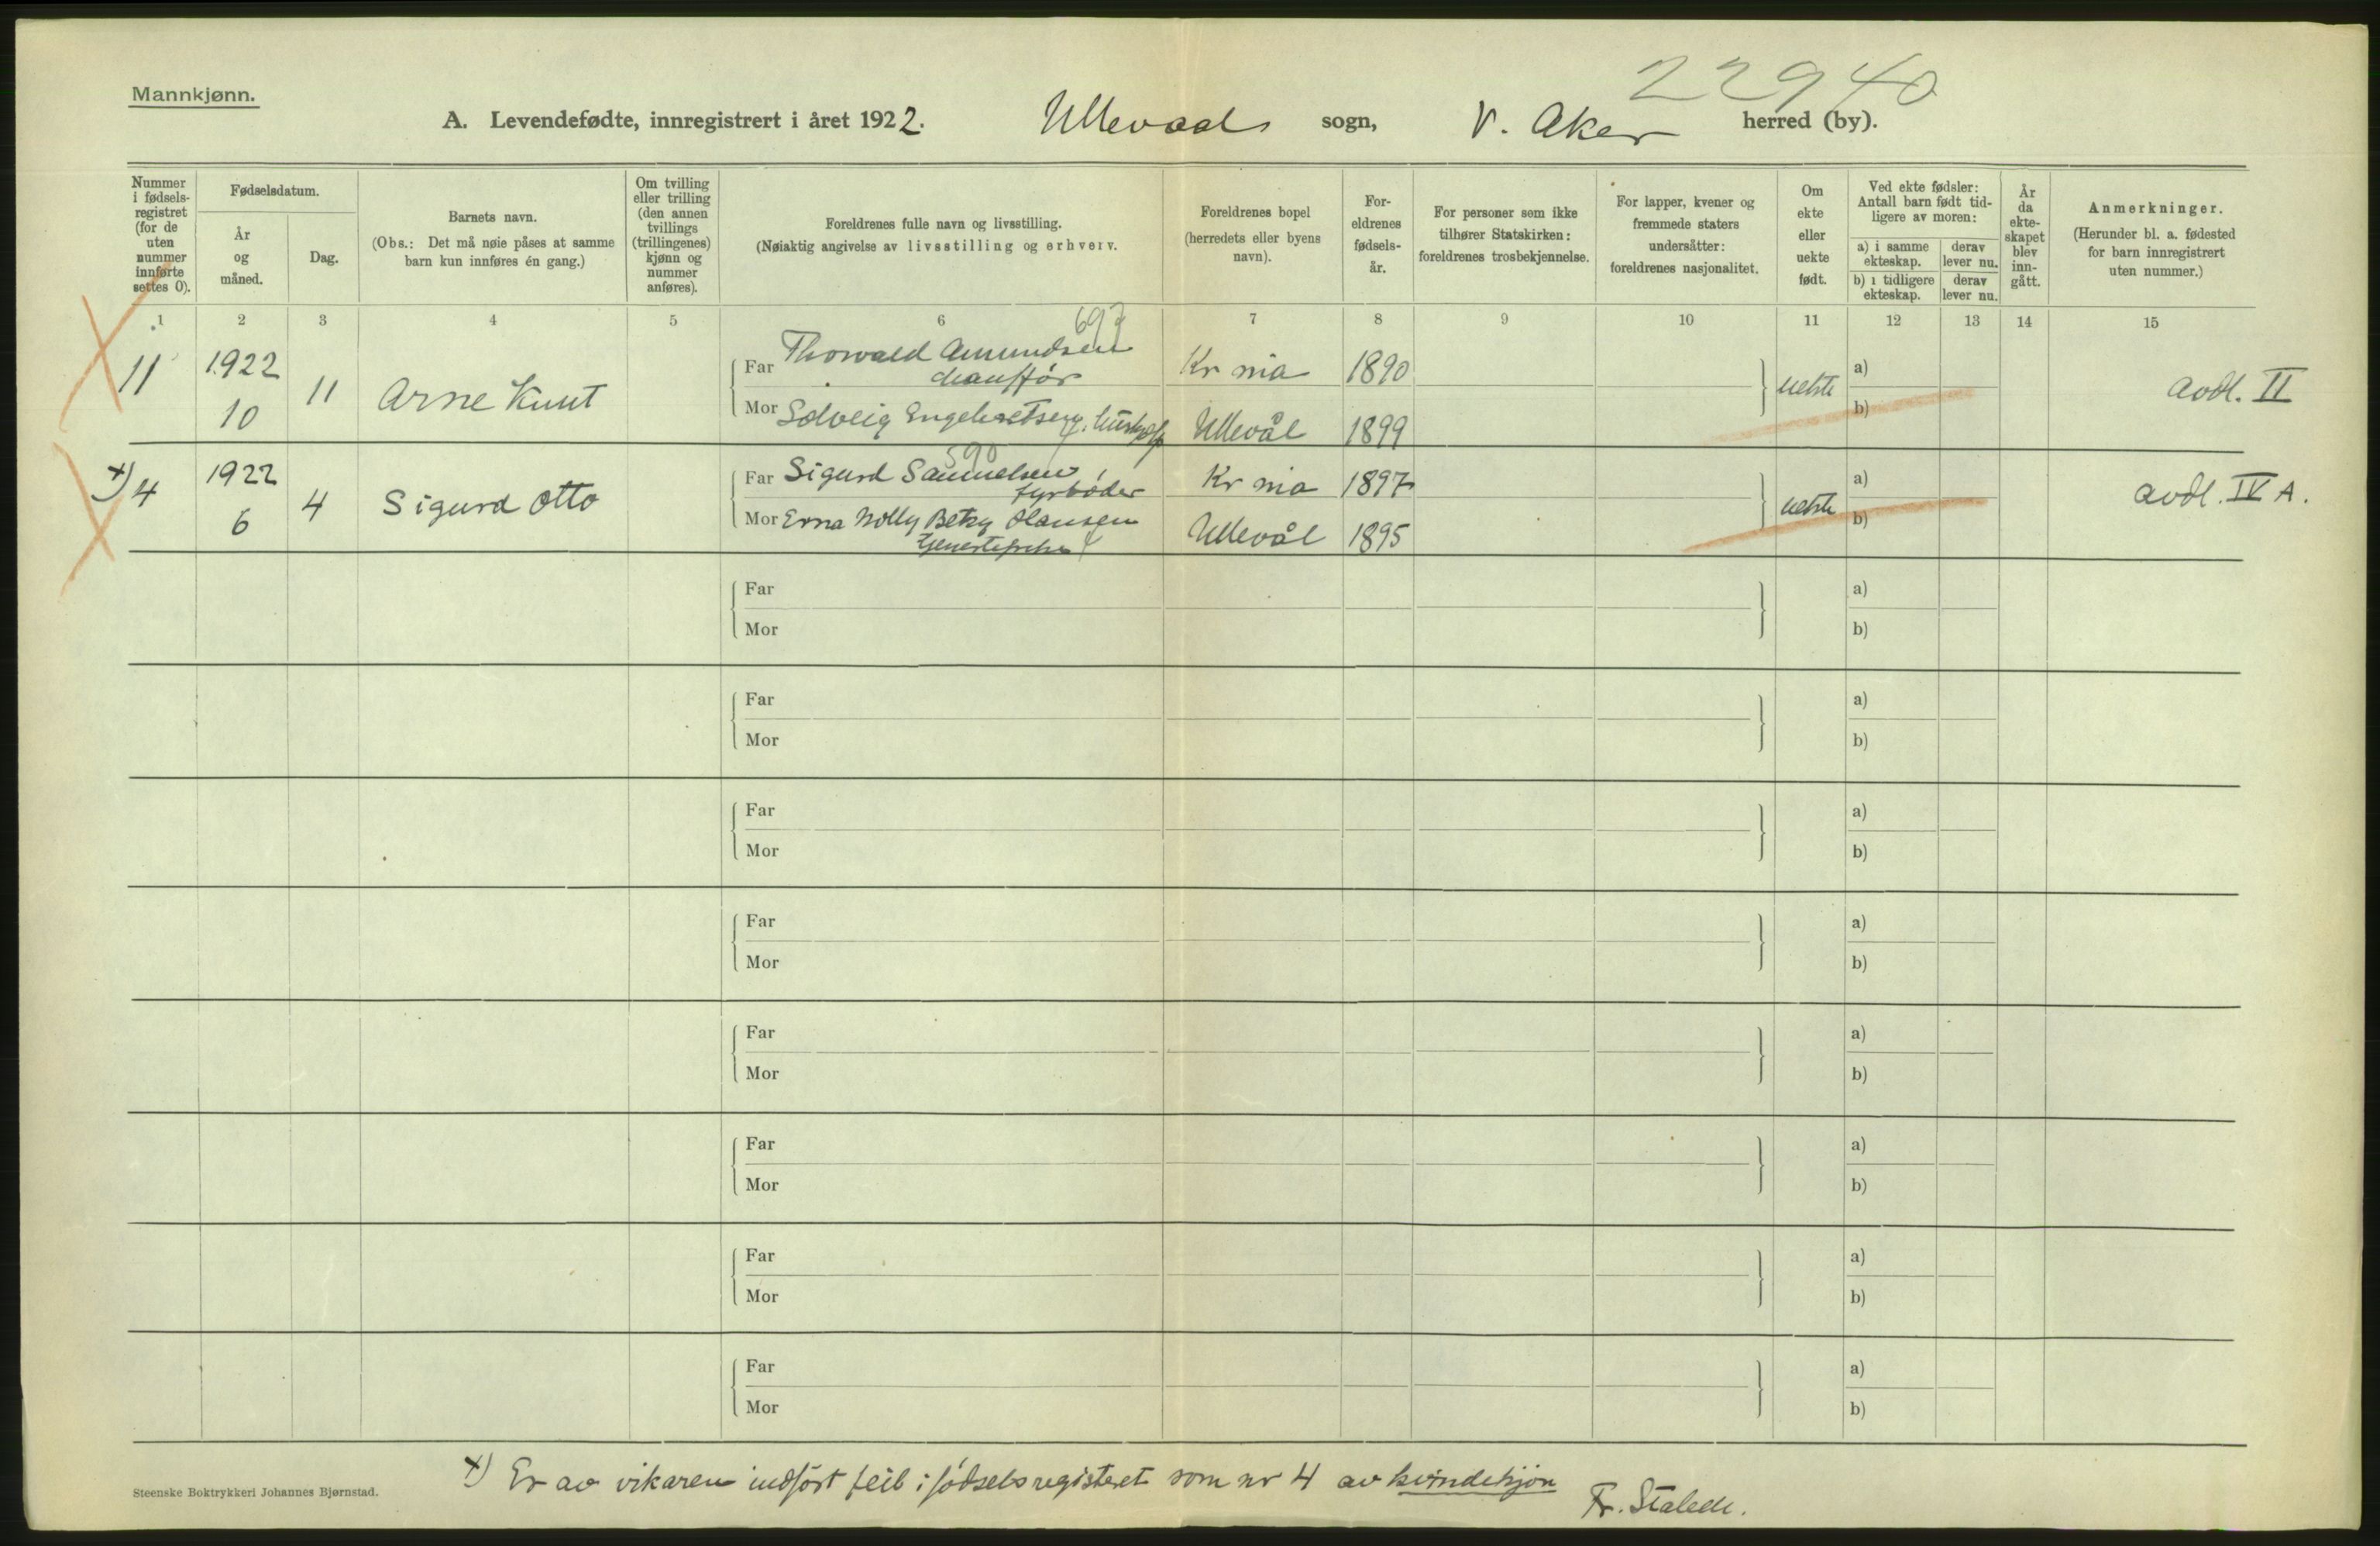 22940
Mannkjønn.
A. Levendefødte, innregistrert i året 1922. Ullevaal sogn, V. Aker herred (by).
Nummer
i fødsels-
registret
(for de
uten
nummer
innførte
settes 0).
Fødselsdatum.
År
og
måned.
Dag.
Barnets navn.
(Obs.: Det må nøie påses at samme
barn kun innføres én gang.)
Om tvilling
eller trilling
(den annen
tvillings
(trillingenes)
kjønn og
nummer
anføres).
Foreldrenes fulle navn og livsstilling.
(Nøiaktig angivelse av livsstilling og erhverv.
Foreldrenes bopel
(herredets eller byens
navn).
For-
eldrenes
fødsels-
år.
For personer som ikke
tilhører Statskirken:
foreldrenes trosbekjennelse.
For lapper, kvener og
fremmede staters
undersåtter:
foreldrenes nasjonalitet.
Om
ekte
eller
uekte
født.
Ved ekte fødsler:
Antall barn født tid-
ligere av moren:
a) i samme
ekteskap.
derav
lever nu.
b) i tidligere
ekteskap.
derav
lever nu.
År
da
ekte-
skapet
blev
inn-
gått.
Anmerkninger.
(Herunder bl. a. fødested
for barn innregistrert
uten nummer.)
1 2 3 4 5 6 7 8 9 10 11 12 13 14 15
697
11 1922 10 11 Arne Knut
Far Thorvald Amundsen
chauffør
Kr nia 1890
Mor Solveig Engebretsen, hushj.
Ullevål 1899
uekte a)
b)
avdl. II
590
x) 4 1922 6 4 Sigurd Otto
Far Sigurd Samuelsen,
fyrbøder
Kr nia 1897
Mor Erna Molly Betzy Hansen
Ullevål 1895
uekte a)
b)
avdl. IV A.
Far a)
Mor b)
Far a)
Mor b)
Far a)
Mor b)
Far a)
Mor b)
Far a)
Mor b)
Far a)
Mor b)
Far a)
Mor b)
Far a)
Mor b)
x) Er av vikaren indført feil i fødselsregisteret som nr 4 av kvindekjøn
Steenske Boktrykkeri Johannes Bjørnstad.
Fr.